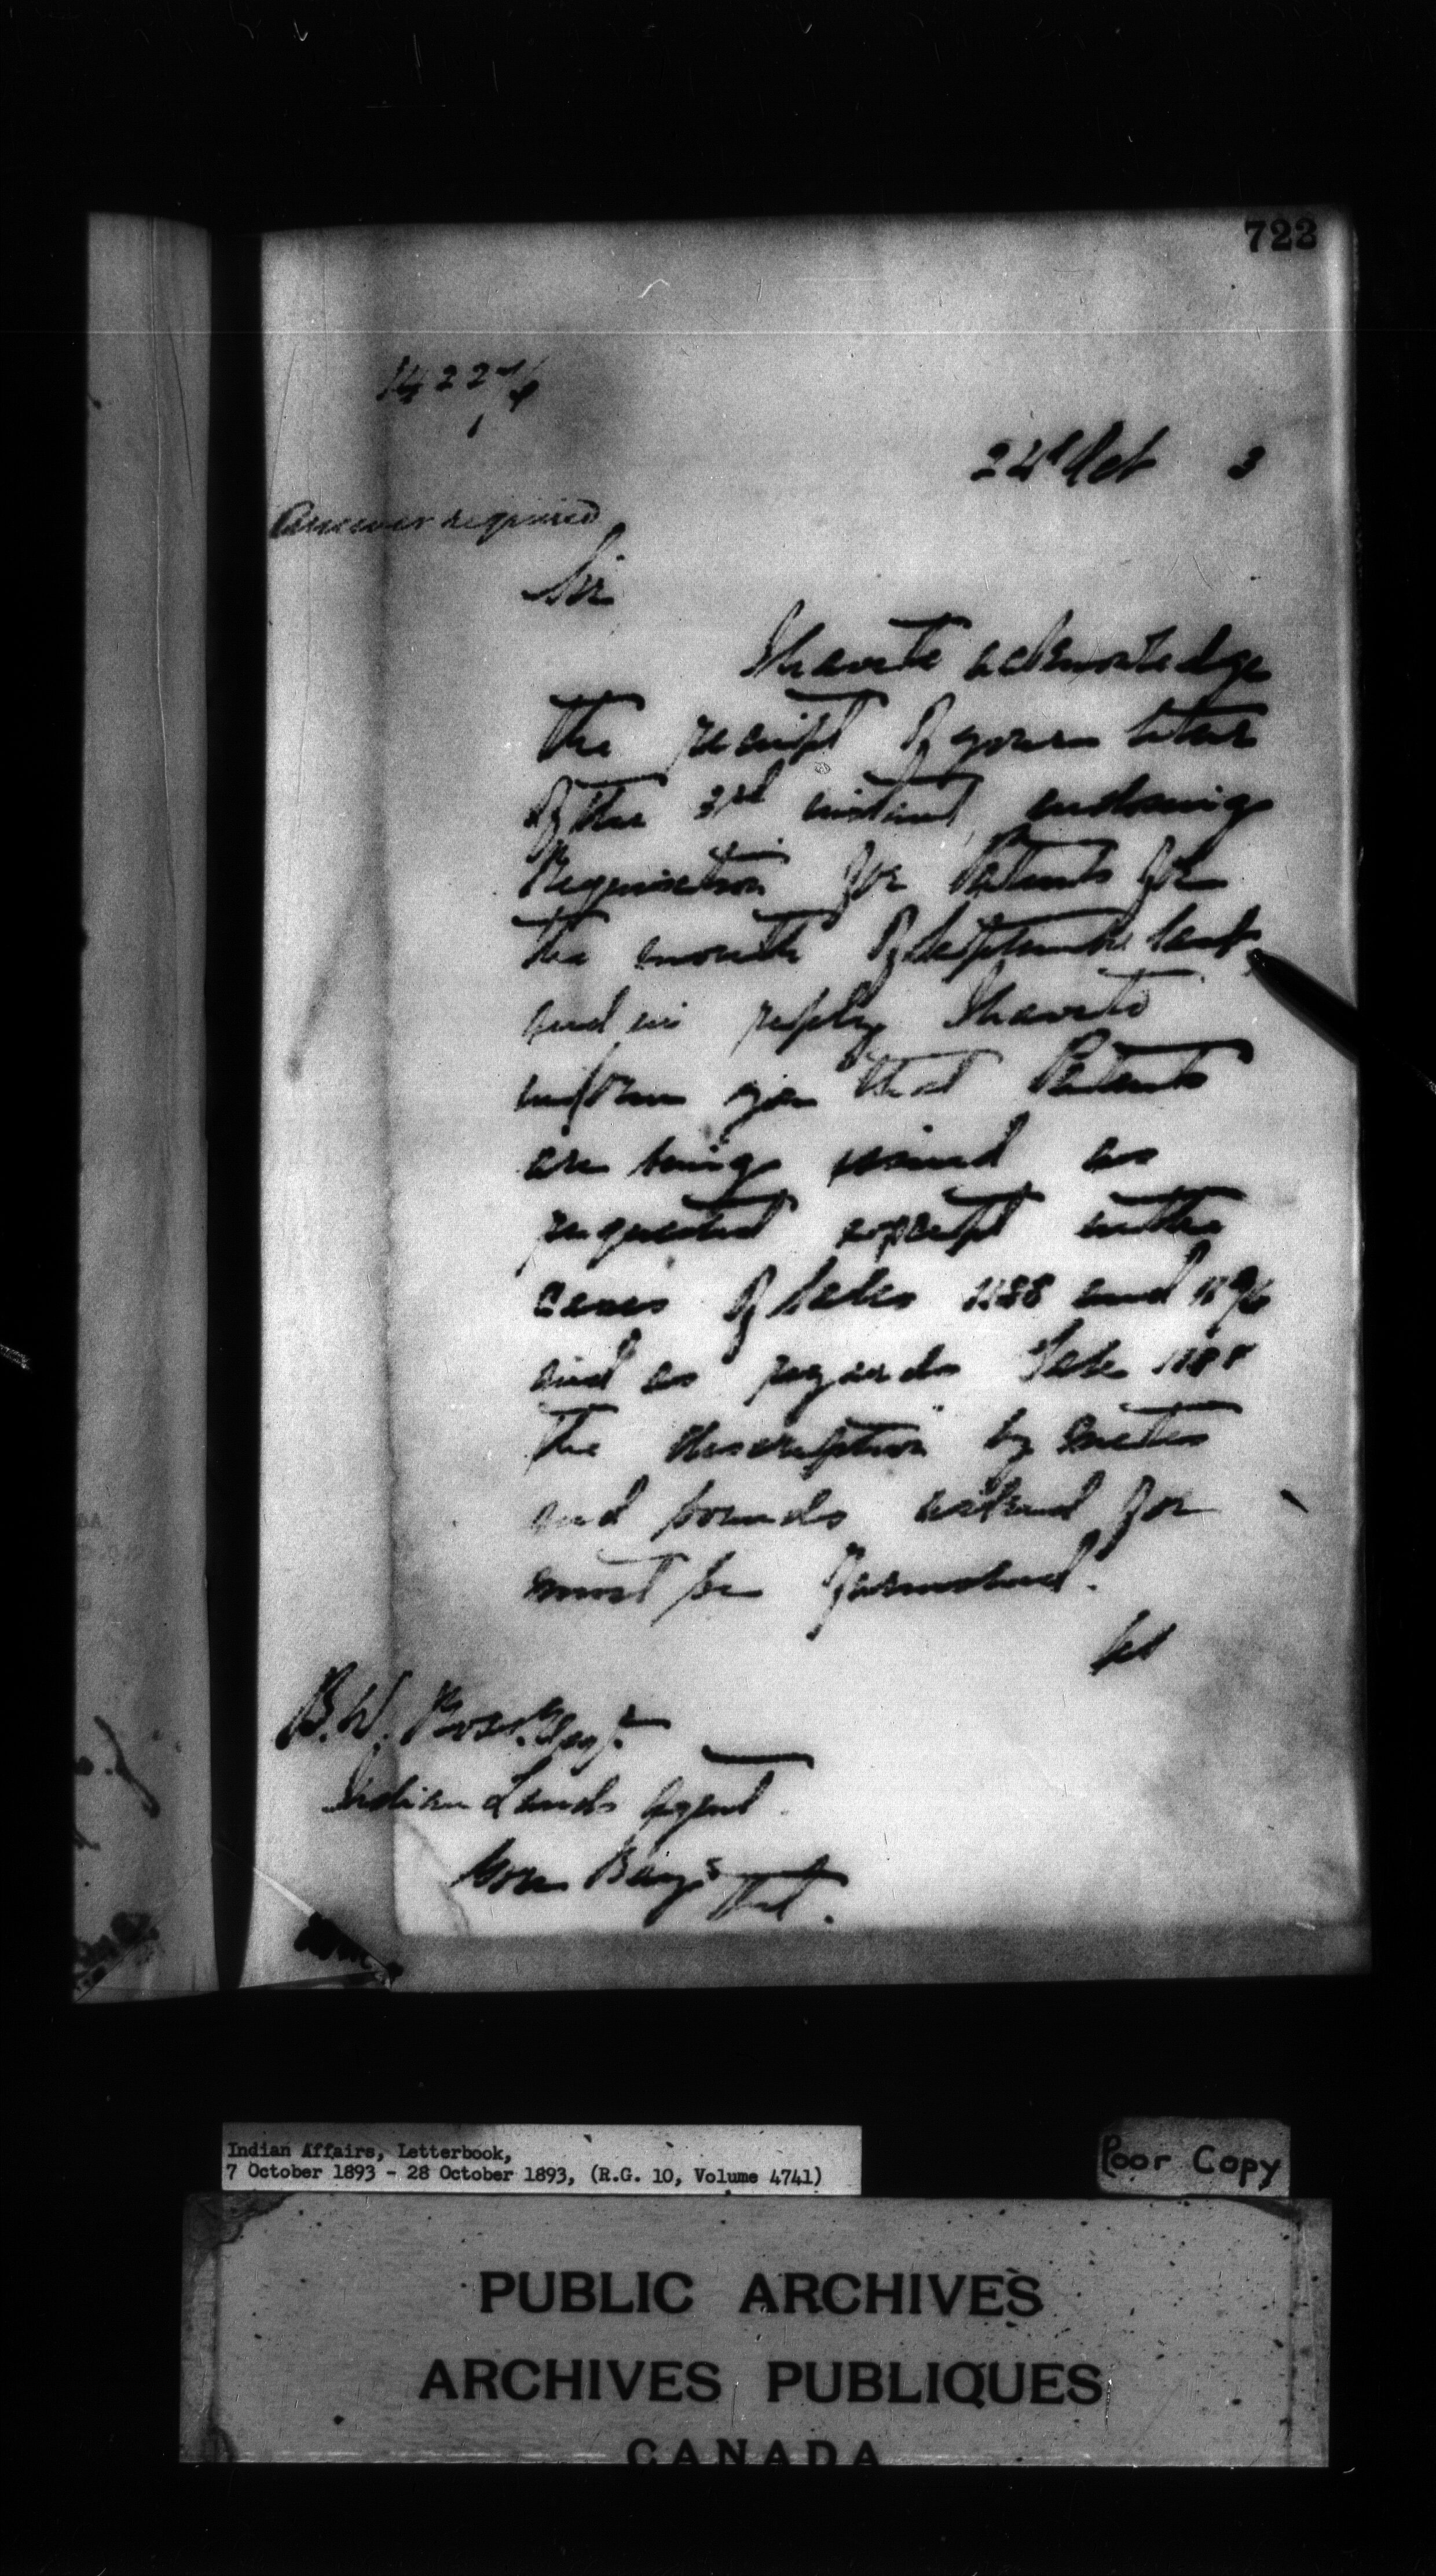 723
24th Oct 3
Answer required
Sir
I have to acknowledge
the receipt of your letter
of the 3rd instant, enclosing
Requisition for Patents for
the month of September last,
and in reply I have to
inform you that Patents
are being issued as
requested except in the
cases of Sales 1188 and 1196
and as regards Sale 1188
the description by metes
and bounds asked for
must be furnished.
B.W. Ross. Esq.
Indian Lands Agent
Bay
Ont.
Indian Affairs, Letterbook,
7 October 1893 - 28 October 1893, (R.G. 10, Volume 4741)
Poor Copy
PUBLIC ARCHIVES
ARCHIVES PUBLIQUES
CANADA